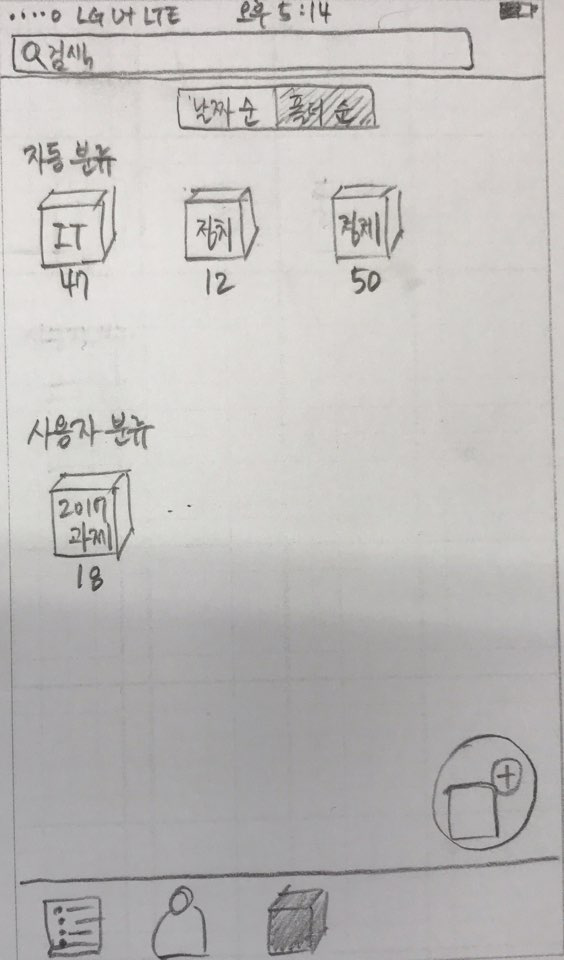 LG U+ LTE 오후 5:14
검색
날짜 순 폴더 순
자동 분류
IT 정치 경제
47 12 50
사용자 분류
2017
과제
18
+